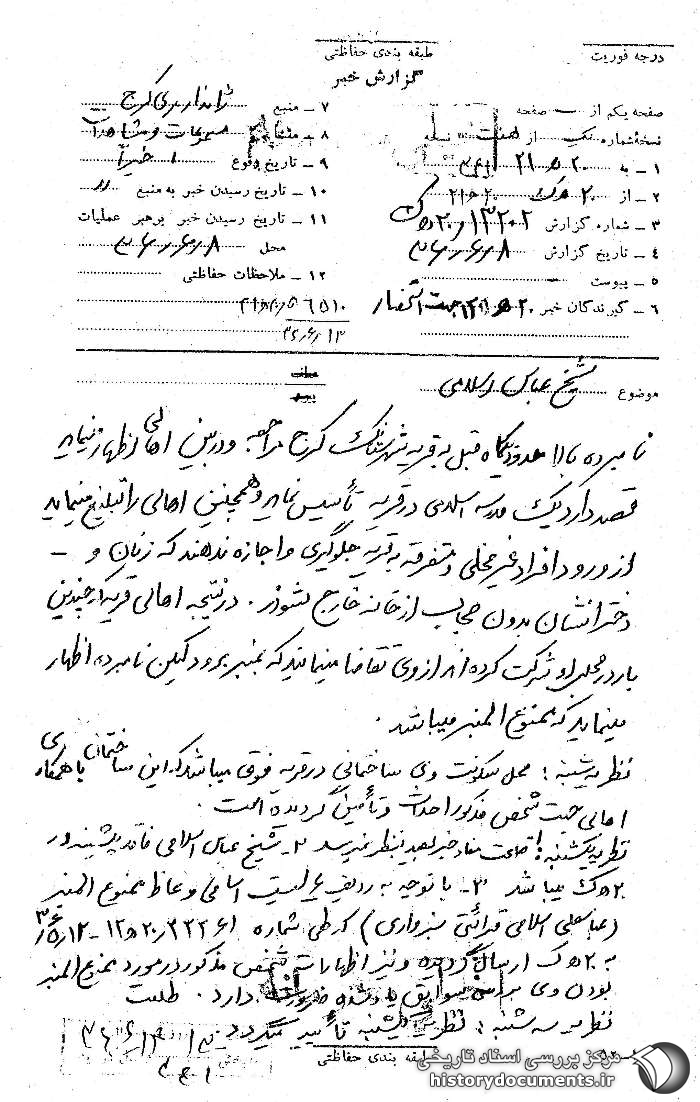 درجه فوریت
طبقه بندی حفاظتی
گزارش خبر
صفحه یکم از صفحه
نسخه شماره یک از هفت نسخه
۱ - به ۲۰ ه ۲۱
۲ - از ۲۰ هـ ک
۳ - شماره گزارش ۲۰/۱۳۲۰۲ هـ ک
۴ - تاریخ گزارش ۳۶/۶/۸
۵ - پیوست
۶ - گیرندگان خبر جهت استحضار
۷ - منبع ژاندارمری کرج
۸ - منشاء مسموعات و مشاهدات
۹ - تاریخ وقوع اخیراً
۱۰ - تاریخ رسیدن خبر به منبع "
۱۱ - تاریخ رسیدن خبر برهبر عملیات
محل ۳۶/۶/۸
۱۲ - ملاحظات حفاظتی
موضوع شیخ عباس اسلامی
نامبرده بالا حدود یکماه قبل به قریه شهرستانک کرج مراجعه و در بین اهالی اظهار مینماید
قصد دارد یک مدرسه اسلامی در قریه تأسیس نماید و همچنین اهالی را تبلیغ مینماید
از ورود افراد غیر محلی و متفرقه به قریه جلوگیری و اجازه ندهند که زنان و -
دخترانشان بدون حجاب از خانه خارج بشوند. در نتیجه اهالی قریه که چندین
بار در مجلس او شرکت کرده اند از وی تقاضا مینمایند که بمنبر برود لیکن نامبرده اظهار
مینماید که ممنوع المنبر میباشد.
نظریه شنبه : محل سکونت وی ساختمانی در قریه فوق میباشد که این ساختمان با همکاری
اهالی جهت شخص مذکور احداث و تأمین گردیده است.
نظریه یکشنبه : ۱- صحت مفاد خبر بعید بنظر نمیرسد ۲- شیخ عباس اسلامی فاقد پیشینه در
۲۰ هـ ک میباشد ۳- با توجه به ردیف لیست اسامی وعاظ ممنوع المنبر
(عباسعلی اسلامی قرائتی سبزواری) که طی شماره
به ۲۰ هـ ک ارسال گردیده و نیز اظهارات شخص مذکور در مورد ممنوع المنبر
بودن وی سوابق یاد شده ضرورت دارد. طلعت
نظریه سه شنبه : نظریه یکشنبه تأیید میگردد
طبقه بندی حفاظتی
مرکز بررسی اسناد تاریخی
historydocuments.ir